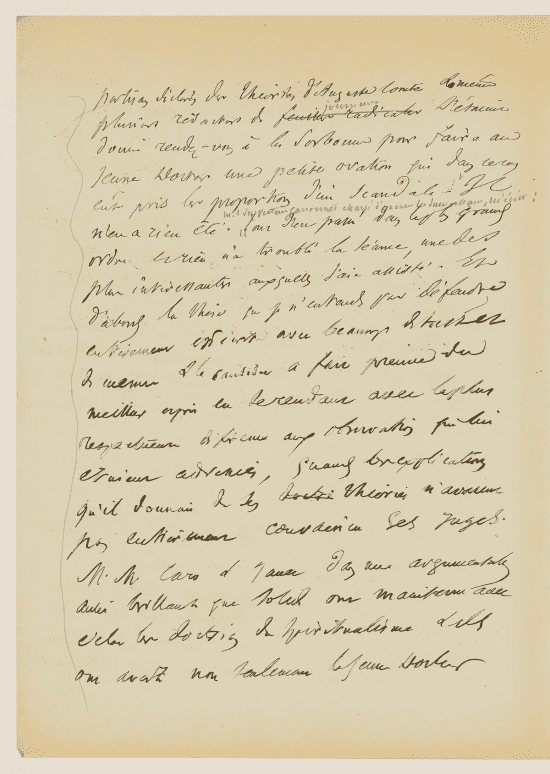 partisan déclaré des théories d'Auguste Comte
plusieurs rédacteurs de feuilles radicales s'étaient
journaux
donné rendez-vous à la Sorbonne pour faire au
jeune Docteur une petite ovation qui
eut pris les proportions d'un scandale. Il
n'en a rien été. Tout s'est passé dans le plus grand
ordre et rien n'a troublé la séance, une des
plus intéressantes auxquelles j'aie assisté. Et
d'abord la thèse que je n'entends pas défendre
entièrement est écrite avec beaucoup de
de même et le candidat a fait preuve du
meilleur esprit en avec la plus
respectueuse déférence aux observations qui lui
étaient adressées, quand les explications
qu'il donnait de ses théories n'avaient
pas entièrement convaincu ses juges.
M. M. Caro et Janet dans une argumentation
aussi brillante que solide ont maintenu avec
éclat les doctrines du spiritualisme et ils
ont averti non seulement le jeune Docteur